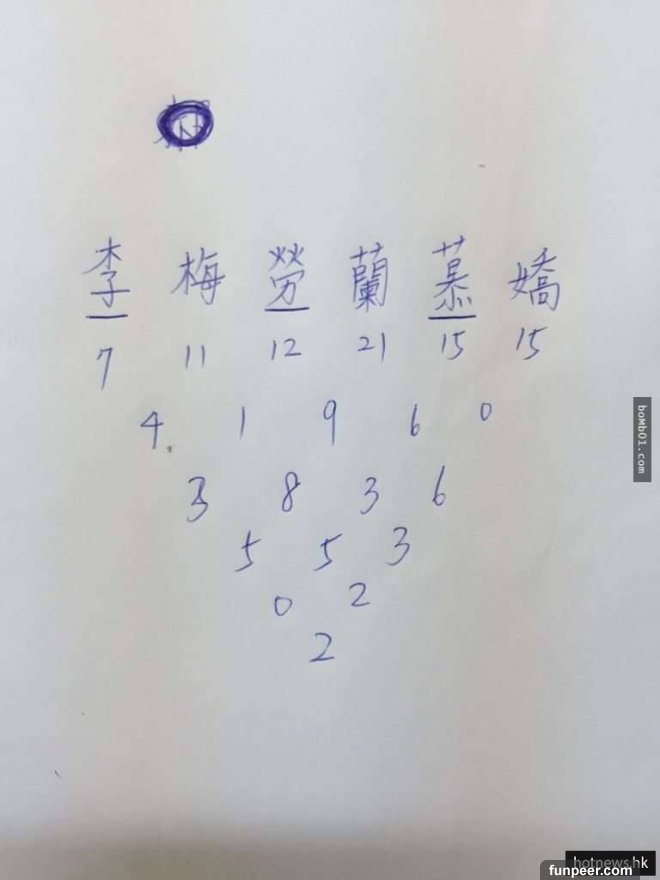 李 梅 勞 蘭 慕 嬌
7 11 12 21 15 15
4 1 9 6 0
3 8 3 6
5 5 3
0 2
2
bomb01.com
hotnews.hk
funpeer.com